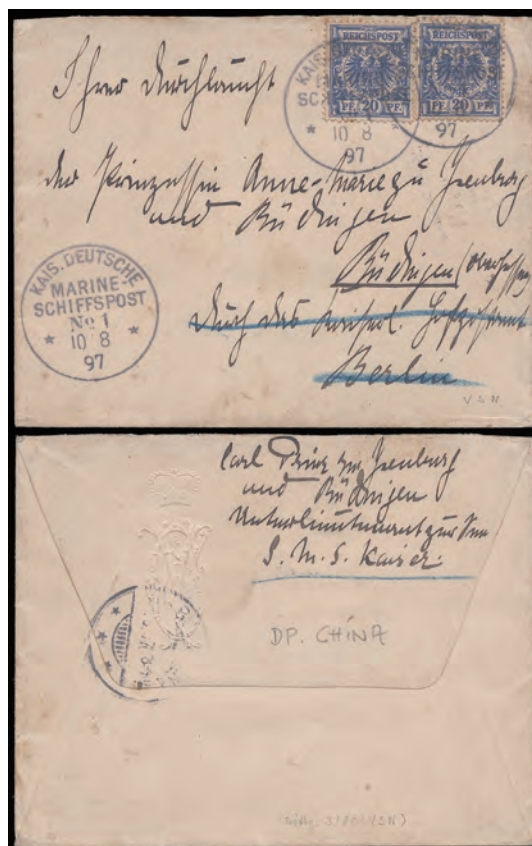 REICHSPOST
REICHSPOST
PF. 20 PF.
PF. 20 PF.
10 8
97
97
Ihrer Durchlaucht
der Prinzessin Anne-Marie zu Isenburg
und Büdingen
Büdingen (Oberhessen)
durch das Kaiserl. Hofpostamt
Berlin
KAIS. DEUTSCHE
MARINE-
SCHIFFSPOST
No 1
10 8
97
Carl Prinz zu Isenburg
und Büdingen
Unterlieutenant zur See
S. M. S. Kaiser.
DP. CHINA